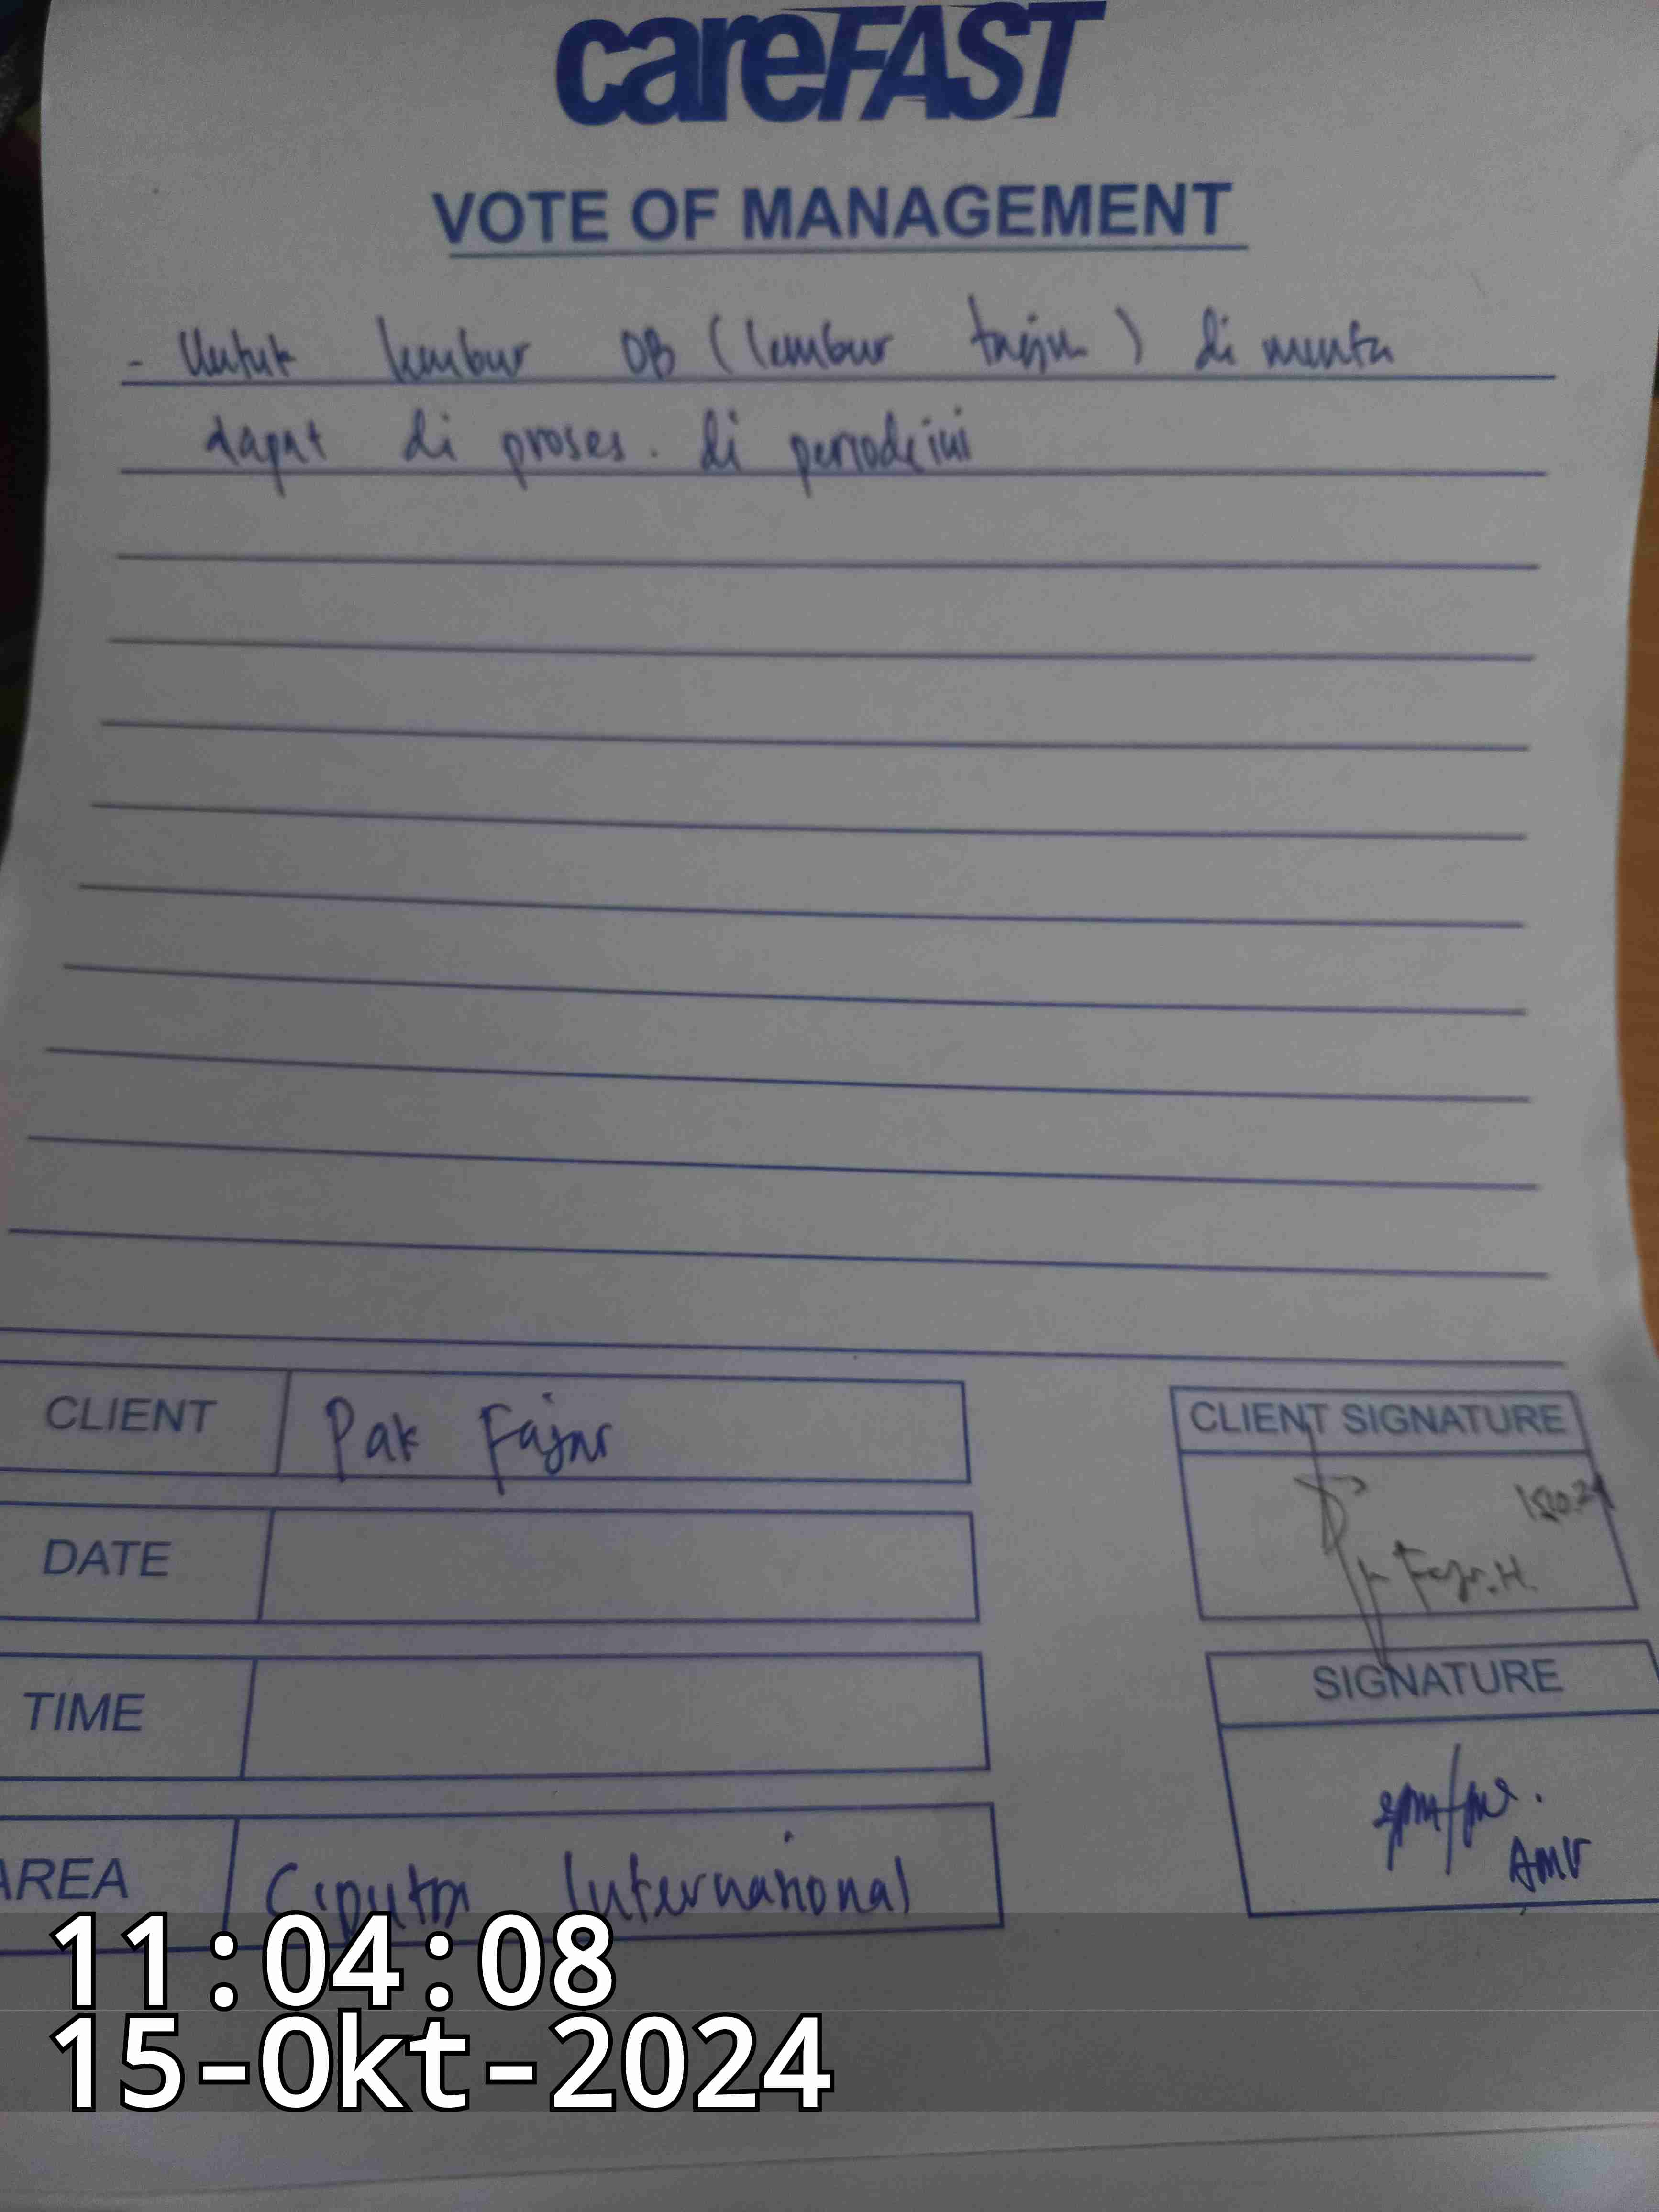 careFAST
VOTE OF MANAGEMENT
- Untuk lembur OB (lembur) di minta
dapat di proses. di periode ini
CLIENT Pak Fajar
DATE
TIME
AREA Ciputra International
CLIENT SIGNATURE
Fajar.H.
SIGNATURE
11:04:08
15-Okt-2024